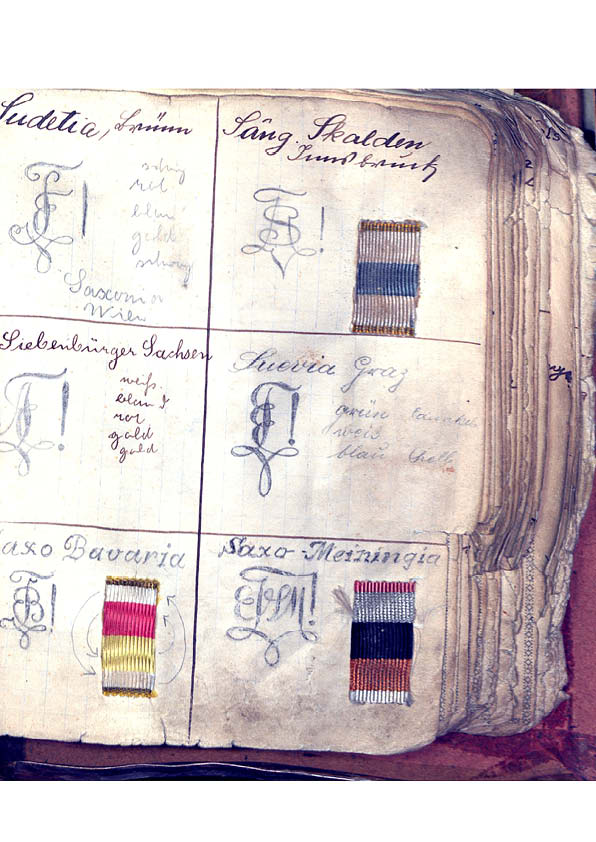 Sudetia, Brünn
schwg
rot
blau
gold
schwg
Saxonia
Wien
Säng. Skalden
Innsbruck
Siebenbürger Sachsen
weiß
blau
rot
gold
gold
Suevia Graz
grün
weiß
blau (hell
axo Bavaria
Saxo-Meiningia